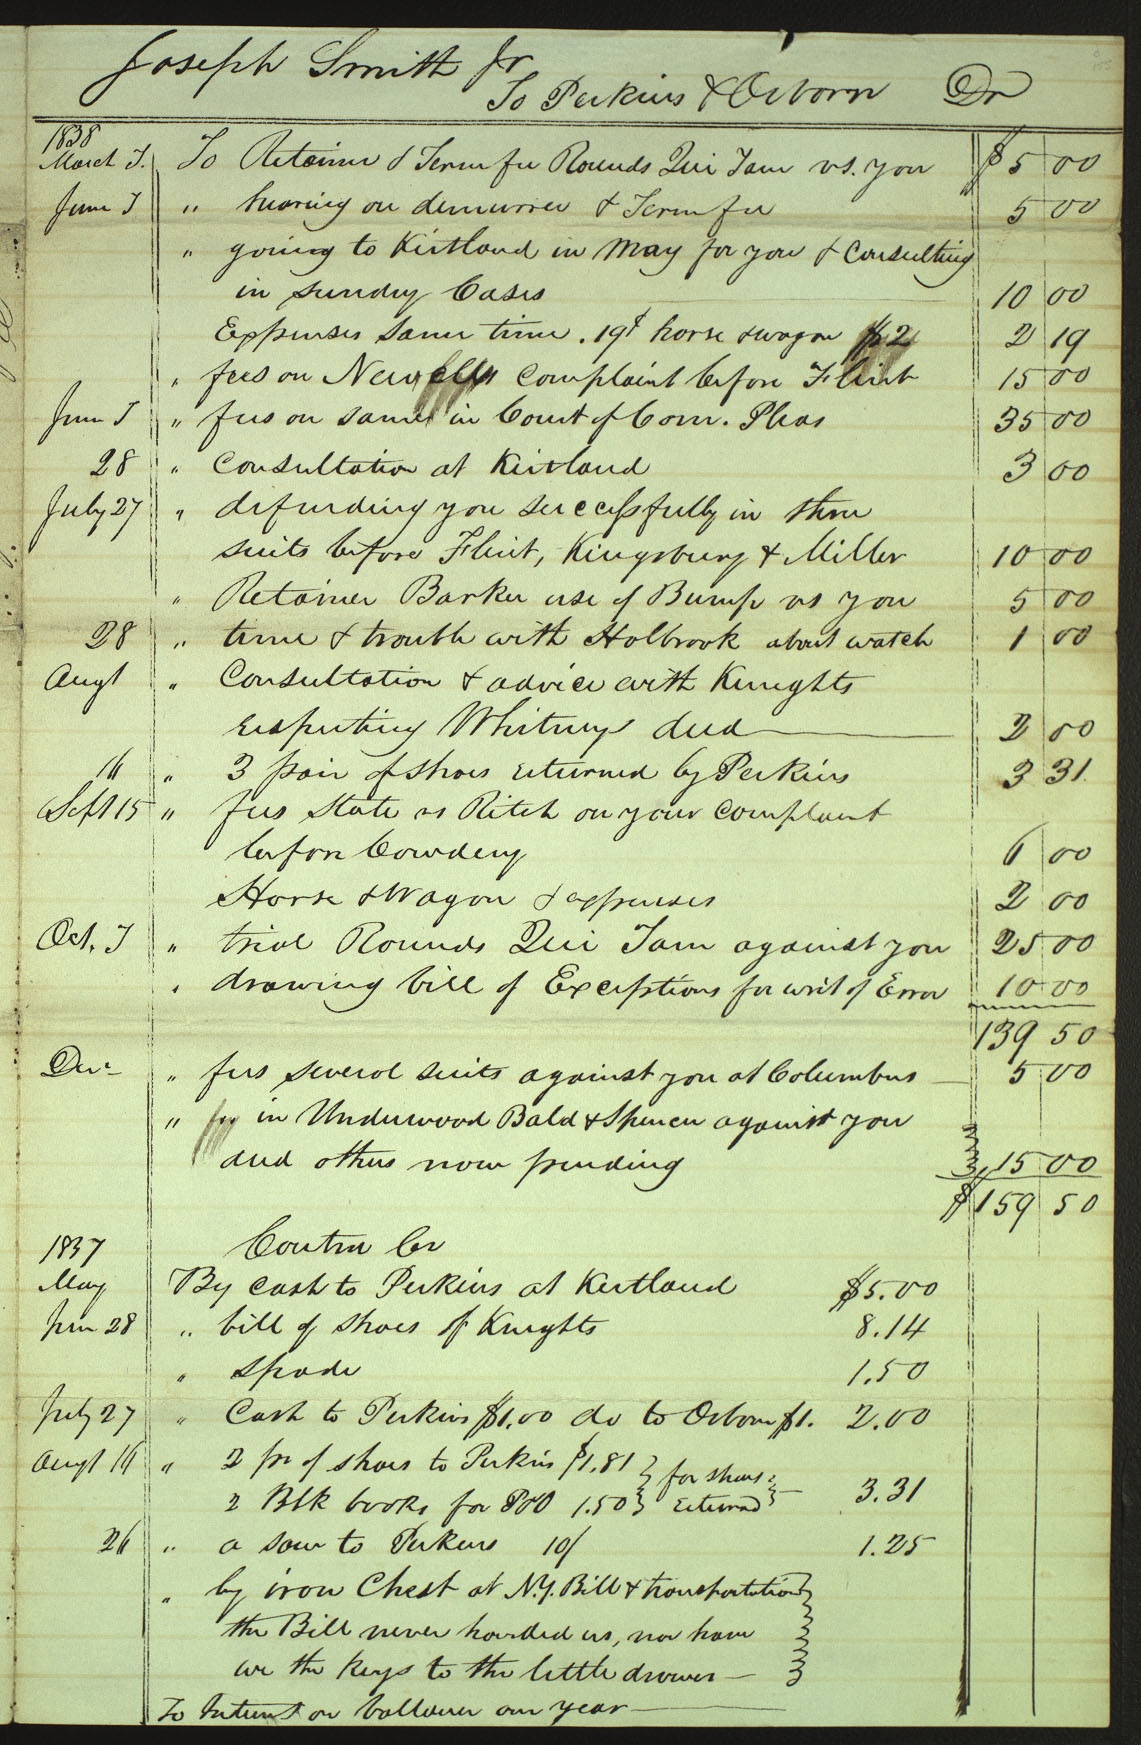 Joseph Smith Jr
To Perkins & Osborn Dr
1838
March T. To Retainer & Term fee Rounds Qui Tam vs. you $5 00
June T " hearing on demurrer & Term fee 5 00
" going to Kirtland in May for you & Consulting
in sundry Cases 10 00
Expenses same time .19¢ horse & wagon $2 2 19
" fees on Newells Complaint before Flint 15 00
June T " fees on same in Court of Com. Pleas 35 00
28 " Consultation at Kirtland 3 00
July 27 " defending you successfully in three
suits before Flint, Kingsbury & Miller 10 00
" Retainer Barker use of Bump vs you 5 00
28 " time & trouble with Holbrook about watch 1 00
Augt " Consultation & advice with Knights
respecting Whitneys deed 2 00
16 " 3 pair of shoes returned by Perkins 3 31
Sept 15 " fees State vs Ritch on your Complaint
before Cowdery 6 00
Horse & Wagon & expenses 2 00
Oct. T " trial Rounds Qui Tam against you 25 00
" drawing bill of Exceptions for writ of Error 10 00
139 50
Decr " fees several suits against you at Columbus 5 00
" fee in Underwood Bald & Spencer against you
and others now pending 15 00
$159 50
1837 Contra Cr
May By Cash to Perkins at Kirtland $5.00
June 28 " bill of shoes of Knights 8.14
" Spade 1.50
July 27 " Cash to Perkins $1.00 do to Osborn $1. 2.00
Augt 16 " 2 pr of shoes to Perkins $1.81 } for shoes
2 Blk books for P&O 1.50 } returned 3.31
26 " a saw to Perkins 10/ 1.25
" by iron Chest at N.Y. Bill & transportation
the Bill never handed us, nor have
we the keys to the little drawer
To Interest on ballance one year